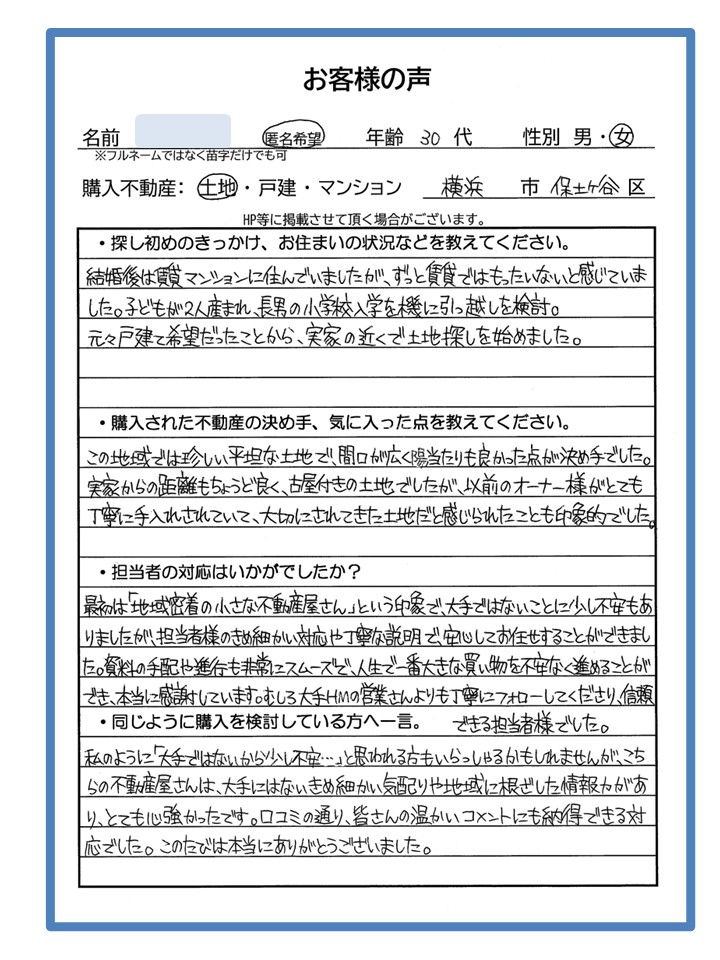 お客様の声
名前 匿名希望 年齢 30 代 性別 男・女
※フルネームではなく苗字だけでも可
購入不動産： 土地・戸建・マンション 横浜 市 保土ヶ谷 区
HP等に掲載させて頂く場合がございます。
・探し初めのきっかけ、お住まいの状況などを教えてください。
結婚後は賃貸マンションに住んでいましたが、ずっと賃貸ではもったいないと感じていま
した。子どもが2人産まれ、長男の小学校入学を機に引っ越しを検討。
元々戸建て希望だったことから、実家の近くで土地探しを始めました。
・購入された不動産の決め手、気に入った点を教えてください。
この地域では珍しい平坦な土地で、間口が広く陽当たりも良かった点が決め手でした。
実家からの距離もちょうど良く、古屋付きの土地でしたが、以前のオーナー様がとても
丁寧に手入れされていて、大切にされてきた土地だと感じられたことも印象的でした。
・担当者の対応はいかがでしたか？
最初は「地域密着の小さな不動産屋さん」という印象で、大手ではないことに少し不安もあ
りましたが、担当者様のきめ細かい対応や丁寧な説明で、安心してお任せすることができまし
た。資料の手配や進行も非常にスムーズで、人生で一番大きな買い物を不安なく進めることが
でき、本当に感謝しています。むしろ大手HMの営業さんよりも丁寧にフォローしてくださり、信頼
できる担当者様でした。
・同じように購入を検討している方へ一言。
私のように「大手ではないから少し不安…」と思われる方もいらっしゃるかもしれませんが、こち
らの不動産屋さんは、大手にはないきめ細かい気配りや地域に根ざした情報力があ
り、とても心強かったです。口コミの通り、皆さんの温かいコメントにも納得できる対
応でした。このたびは本当にありがとうございました。